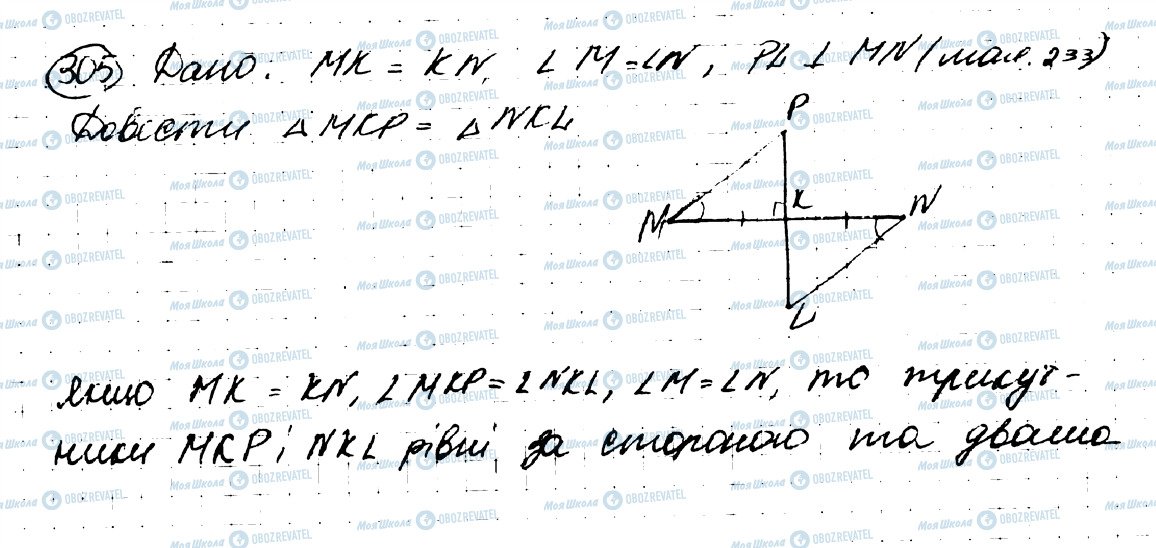 305) Дано: MK = KN, ∠M = ∠N, PL ⊥ MN (мал. 233)
Довести △MKP = △NKL
P
M K N
L
Якщо MK = KN, ∠MKP = ∠NKL, ∠M = ∠N, то трикут-
ники MKP і NKL рівні за стороною та двома